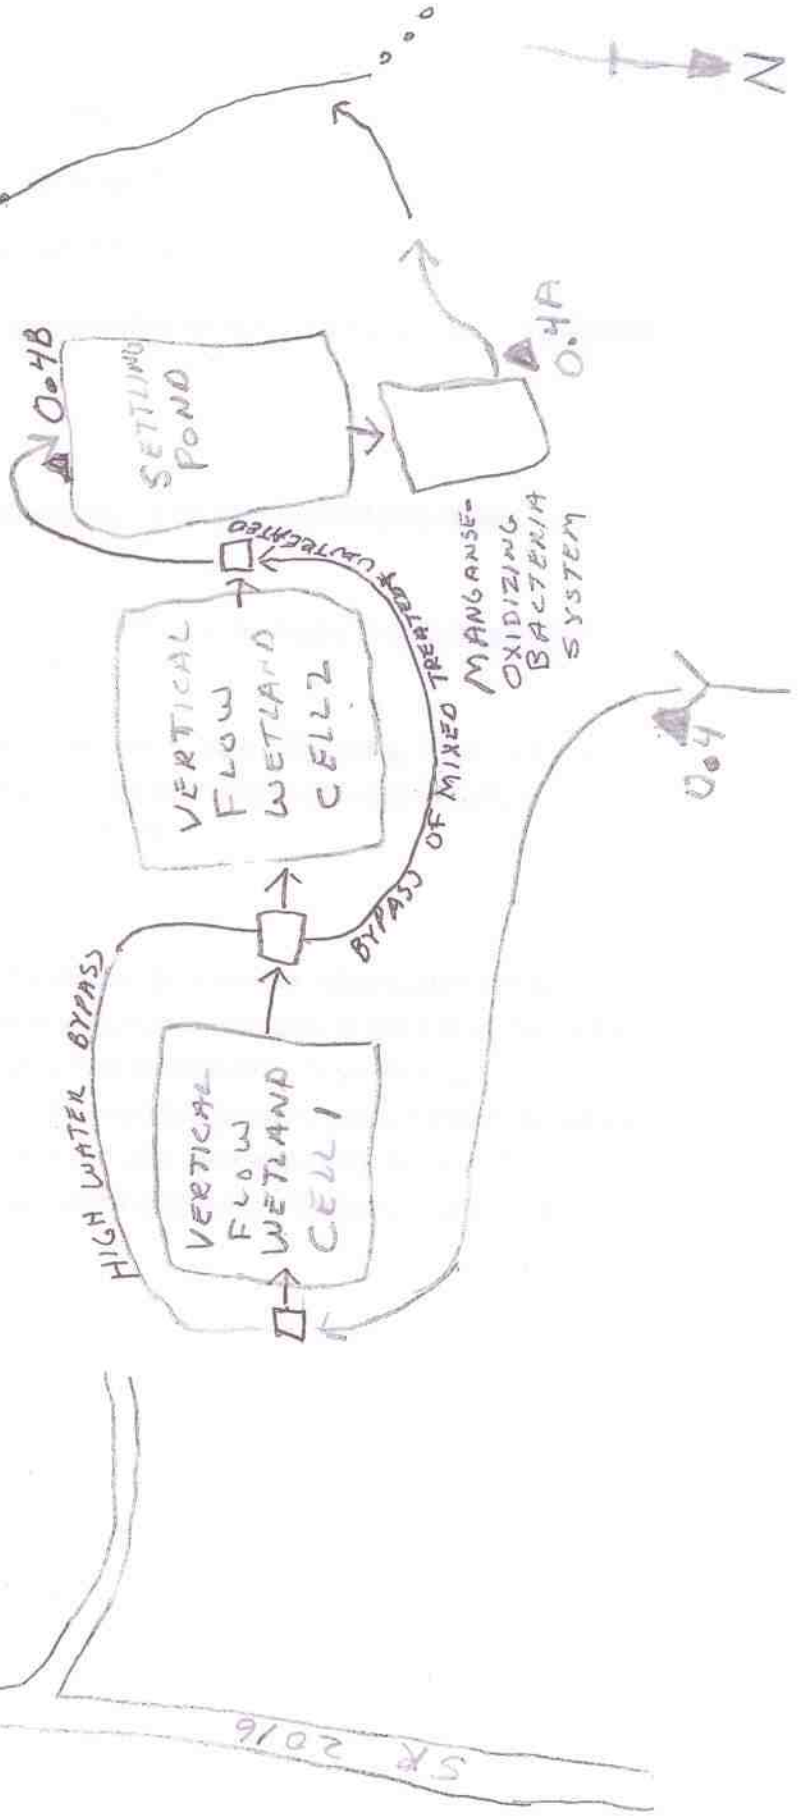 N
0.4B
SETTLING
POND
0.4A
MANGANSE-
OXIDIZING
BACTERIA
SYSTEM
VERTICAL
FLOW
WETLAND
CELL 2
BYPASS OF MIXED TREATED & UNTREATED
0.4
HIGH WATER BYPASS
VERTICAL
FLOW
WETLAND
CELL 1
SR 2016